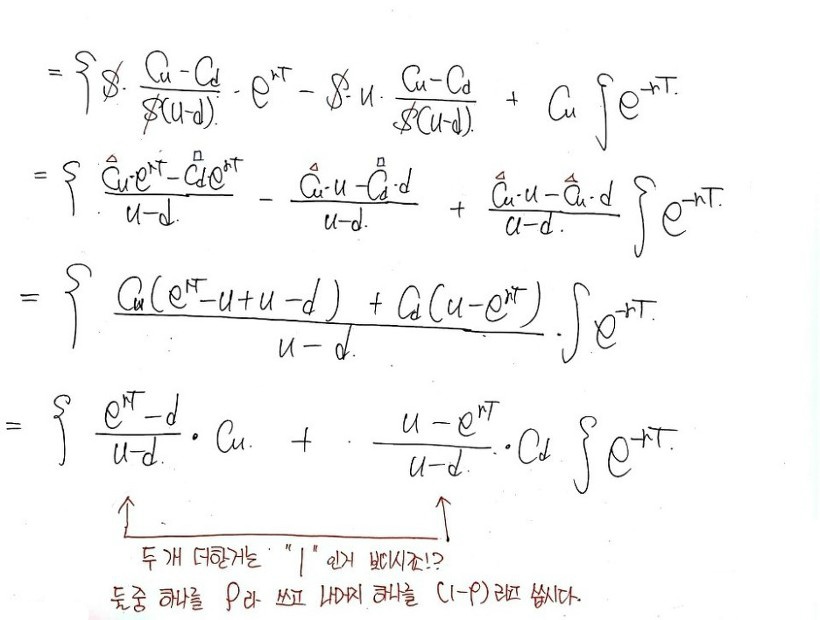 = { $\cancel{S} \cdot \frac{C_u - C_d}{\cancel{S}(u-d).} \cdot e^{rT} - \cancel{S} \cdot u \cdot \frac{C_u - C_d}{\cancel{S}(u-d).} + C_u$ } $e^{-rT}.$
= { $\frac{\overset{△}{C_u} \cdot e^{rT} - \overset{□}{C_d} e^{rT}}{u-d.} - \frac{\overset{△}{C_u} \cdot u - \overset{□}{C_d} \cdot d}{u-d.} + \frac{\overset{△}{C_u} \cdot u - \overset{△}{C_u} \cdot d}{u-d.}$ } $e^{-rT}.$
= { $\frac{C_u(e^{rT} - u + u - d) + C_d(u - e^{rT})}{u-d.} \cdot$ } $e^{-rT}.$
= { $\frac{e^{rT} - d}{u-d.} \cdot C_u. + \cdot \frac{u - e^{rT}}{u-d.} \cdot C_d$ } $e^{-rT}.$
두 개 더한거는 "1" 인거 보이시죠!?
둘중 하나를 P라 쓰고 나머지 하나를 (1-P)라고 씁시다.